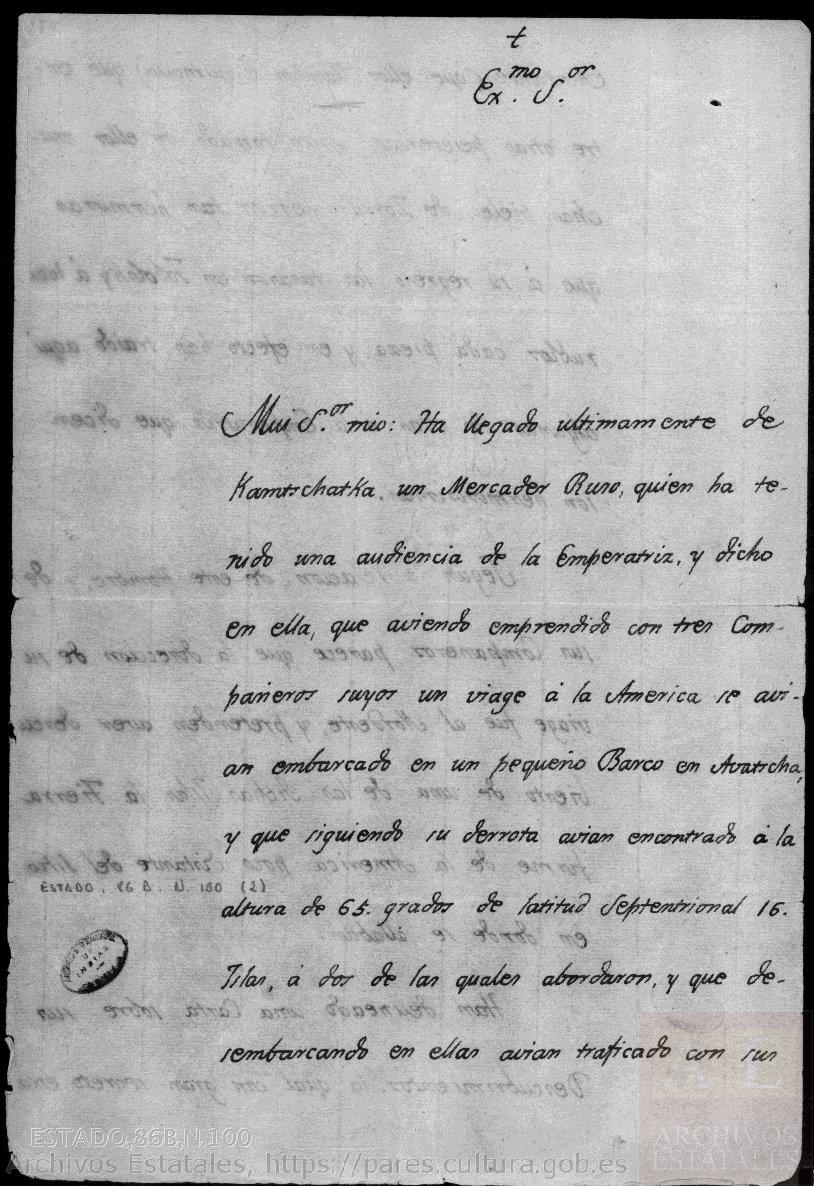 †
Ex.mo S.or
Mui S.or mio: Ha llegado ultimamente de
Kamtschatka un Mercader Ruso, quien ha te-
nido una audiencia de la Emperatriz, y dicho
en ella, que aviendo emprendido con tres Com-
pañeros suyos un viage à la America se avi-
an embarcado en un pequeño Barco en Avatscha,
y que siguiendo su derrota avian encontrado à la
altura de 65. grados de latitud Septentrional 16.
Islas, à dos de las quales abordaron, y que de-
sembarcando en ellas avian traficado con sus
ESTADO. 86 B. N. 100 (2)
INDIAS
ESTADO,86B,N.100
Archivos Estatales, https://pares.cultura.gob.es
A E
ARCHIVOS
ESTATALES